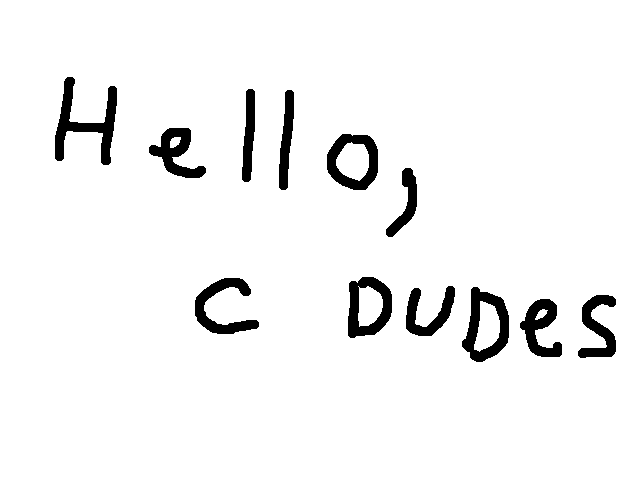 Hello,
C DUDes